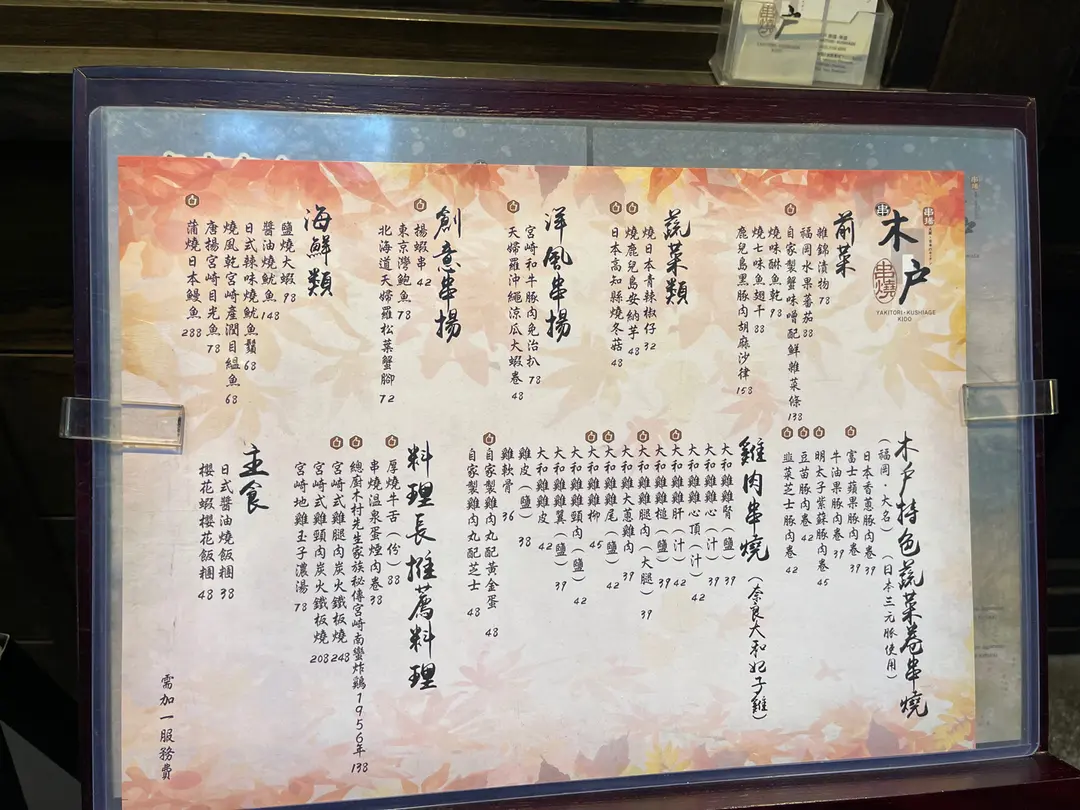 串
木戶
串揚
串燒
YAKITORI・KUSHIAGE
KIDO
前菜
雜錦漬物 78
福岡水果番茄 88
自家製蟹味噌配鮮雜菜條 138
燒味醂魚乾 98
燒七味魚翅干 88
鹿兒島黑豚肉胡麻沙律 158
蔬菜類
燒日本青辣椒仔 32
燒鹿兒島安納芋 48
日本高知縣燒冬菇 48
洋風串揚
宮崎和牛豚肉免治扒 78
天婦羅沖繩涼瓜大蝦卷 48
創意串揚
揚蝦串 42
東京灣鮑魚 78
北海道天婦羅松葉蟹腳 72
海鮮類
鹽燒大蝦 98
醬油燒魷魚 148
日式辣味燒魷魚鬚 68
燒風乾宮崎產潤目鰮魚 68
唐揚宮崎目光魚 78
蒲燒日本鰻魚 288
木戶特色蔬菜卷串燒
(福岡・大名) (日本三元豚使用)
日本香蔥豚肉卷 39
富士蘋果豚肉卷 39
牛油果豚肉卷 39
明太子紫蘇豚肉卷 45
豆苗豚肉卷 42
韮菜芝士豚肉卷 42
雞肉串燒 (奈良大和妃子雞)
大和雞雞腎 (鹽) 39
大和雞雞心 (汁) 39
大和雞雞心頂 (汁) 42
大和雞雞肝 (汁) 42
大和雞雞槌 (鹽) 39
大和雞雞肉 (大腿) 39
大和雞大蔥雞肉 39
大和雞雞尾 (鹽) 42
大和雞雞柳 45
大和雞雞頸肉 (鹽) 42
大和雞雞翼 (鹽) 39
大和雞雞皮 42
雞皮 (鹽) 38
雞軟骨 36
自家製雞肉丸配黃金蛋 48
自家製雞肉丸配芝士 48
料理長推薦料理
厚燒牛舌 (份) 88
串燒溫泉蛋煙肉卷 38
總廚木村先生家族秘傳宮崎南蠻炸鷄1956年 138
宮崎式雞腿肉炭火鐵板燒 248
宮崎式雞頸肉炭火鐵板燒 208
宮崎地雞玉子濃湯 78
主食
日式醬油燒飯糰 38
櫻花蝦櫻花飯糰 48
需加一服務費